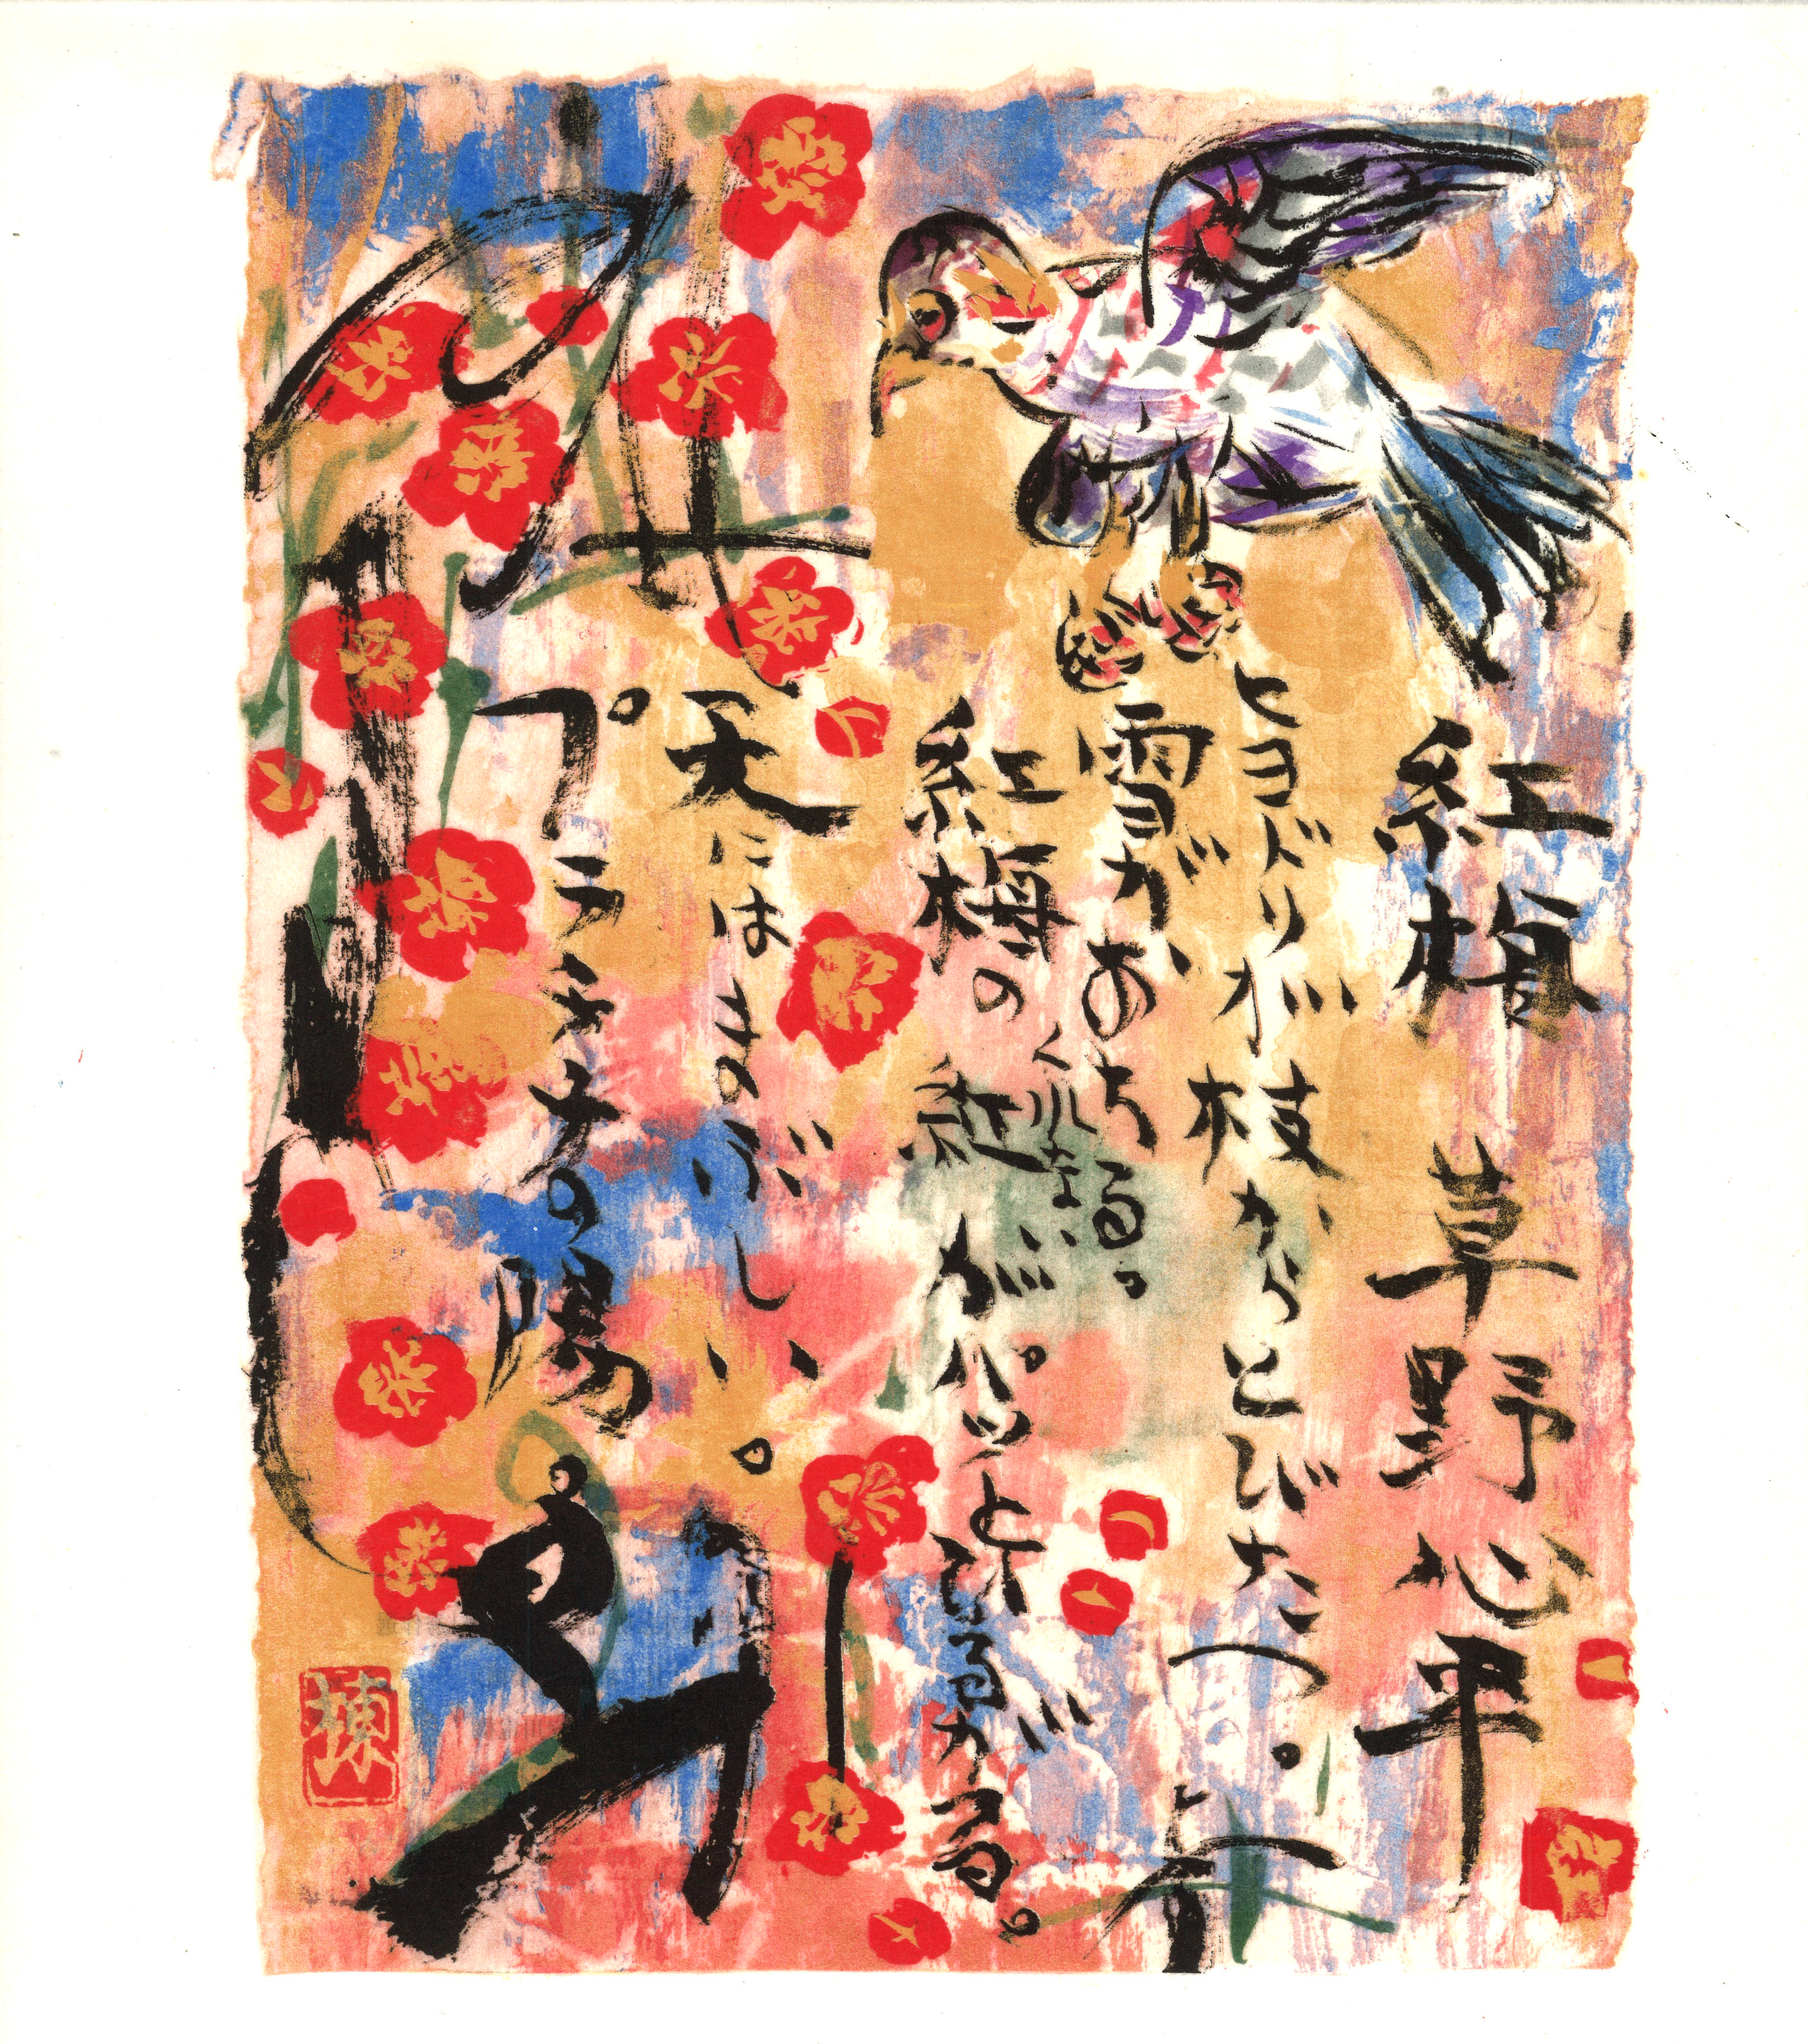 紅梅 草野心平
ヒヨドリが枝からとびたつ。
雪があちる。
紅梅の
くれない
紅がパッとひろがる。
天にはまのぶしい。
プラチナの陽
棟